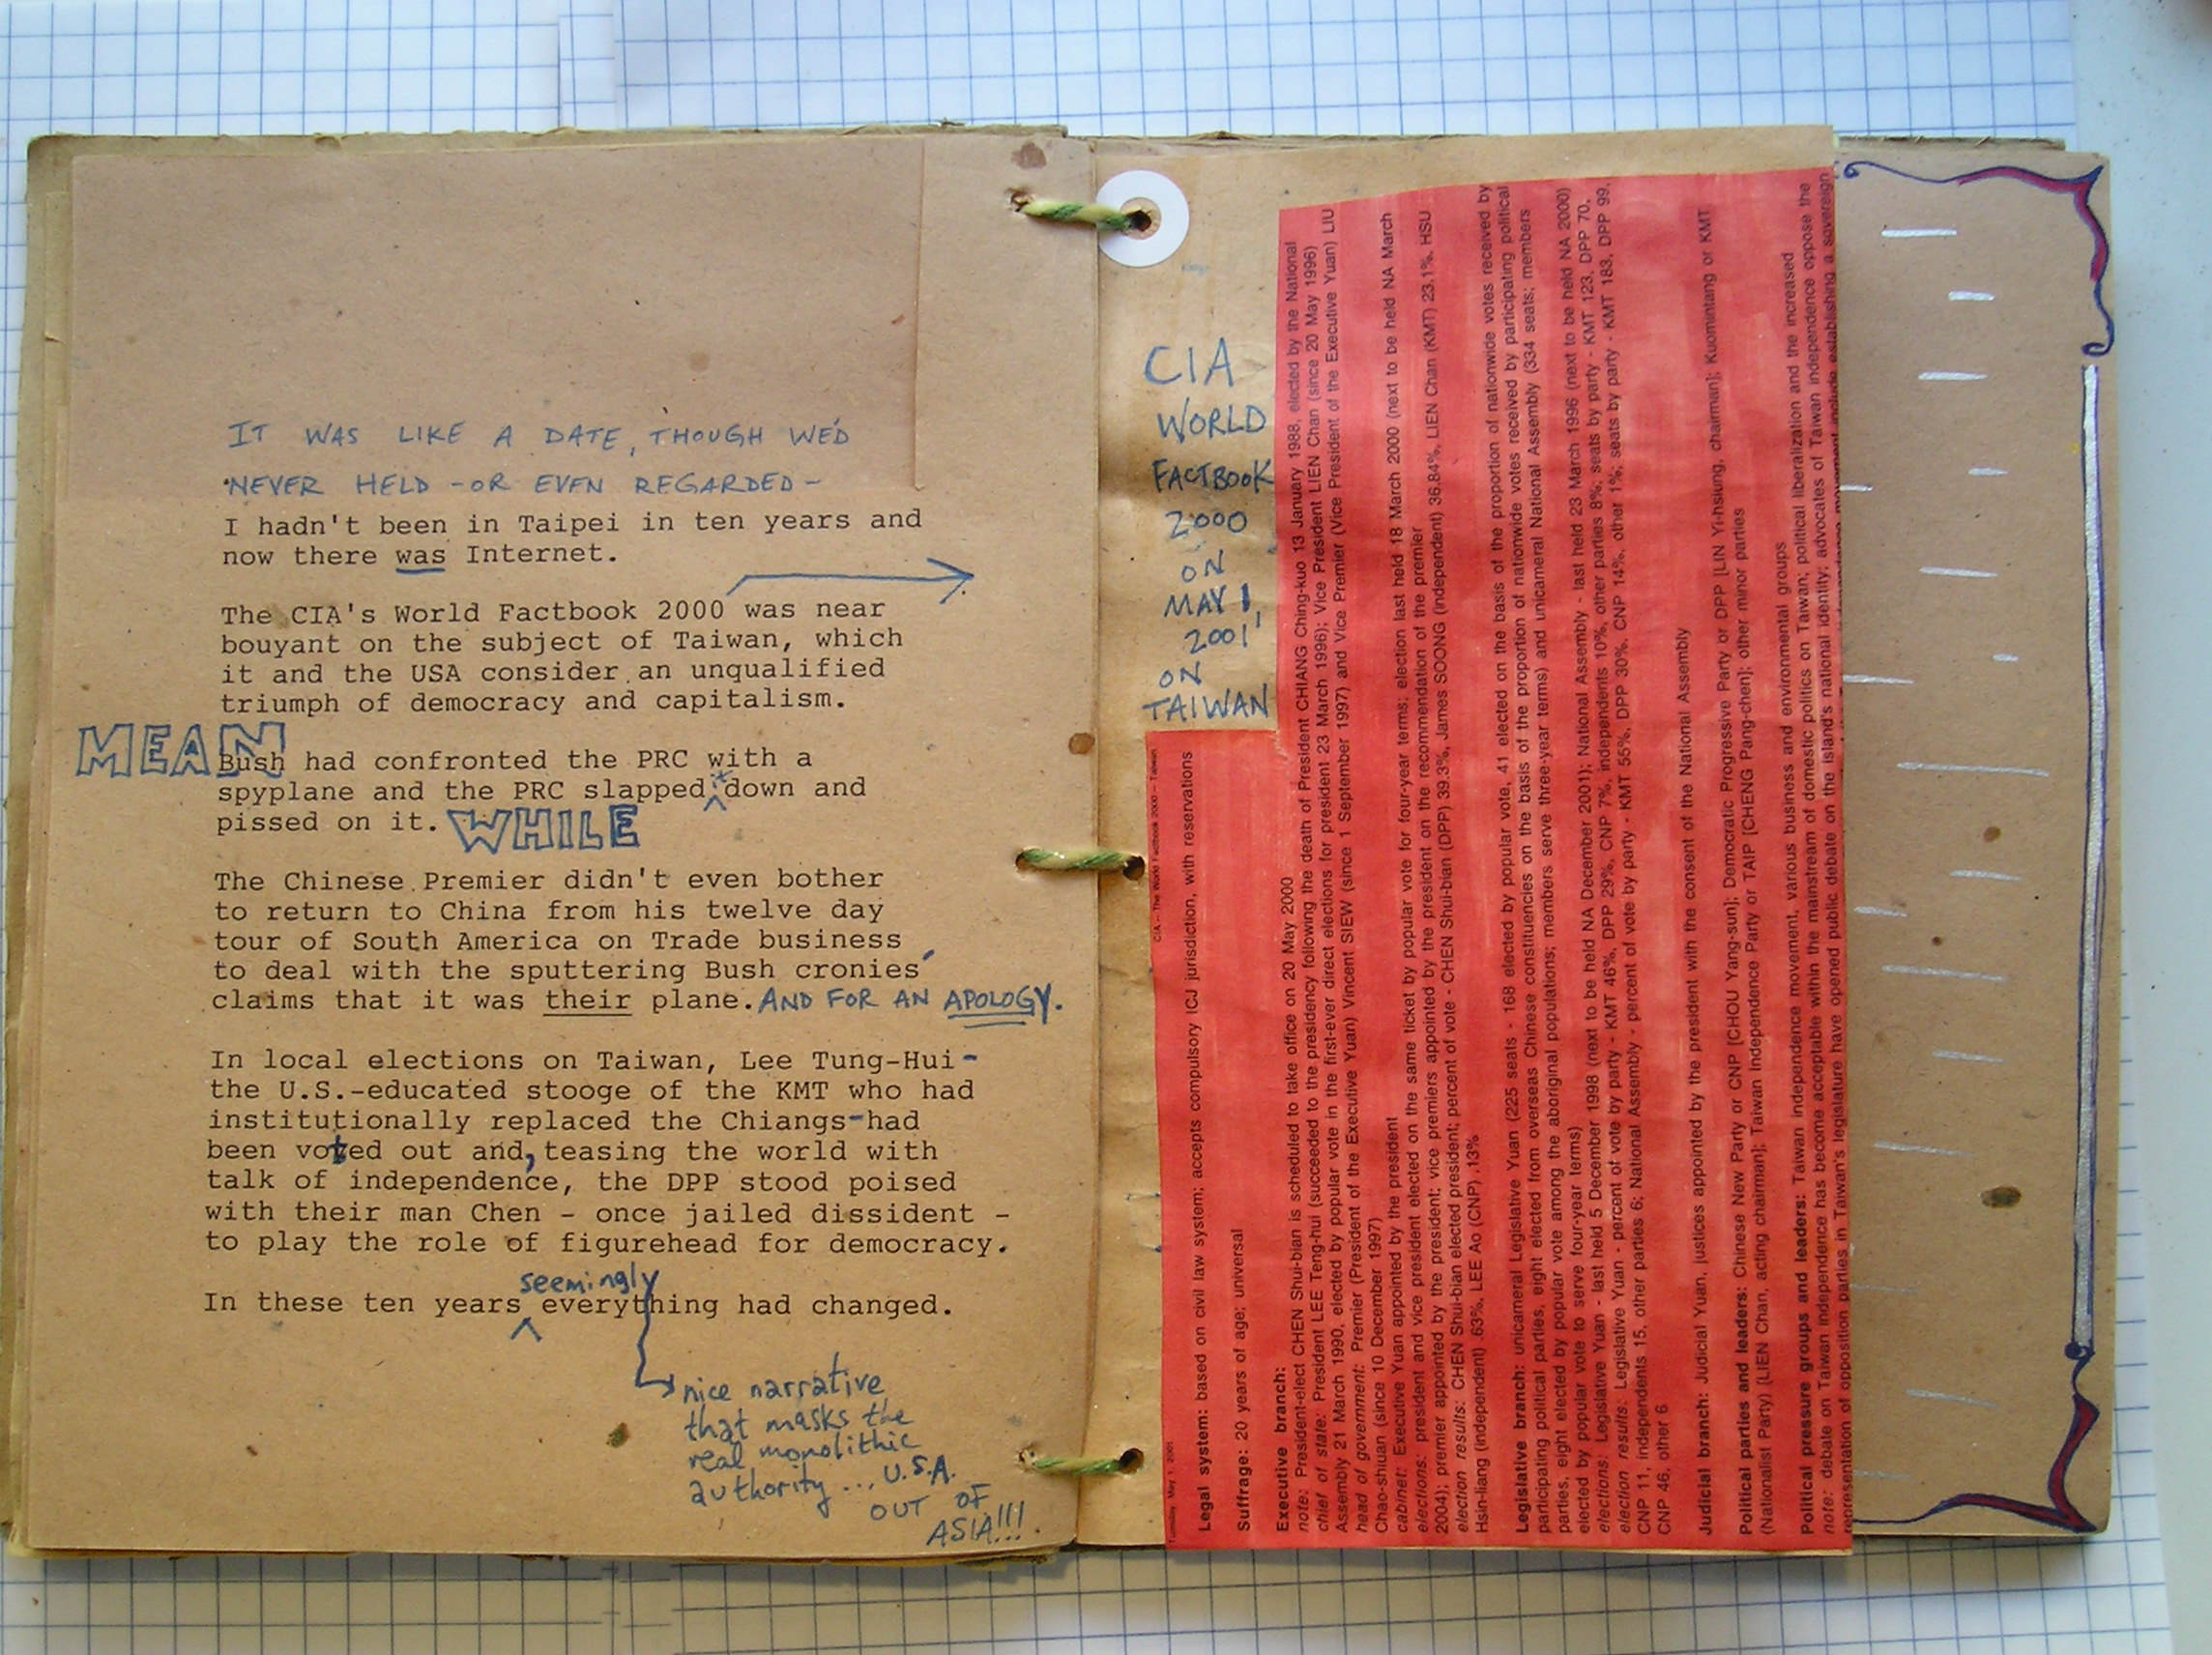 IT WAS LIKE A DATE, THOUGH WE'D
NEVER HELD - OR EVEN REGARDED -
I hadn't been in Taipei in ten years and
now there was Internet.
The CIA's World Factbook 2000 was near
bouyant on the subject of Taiwan, which
it and the USA consider an unqualified
triumph of democracy and capitalism.
MEAN
Bush had confronted the PRC with a
spyplane and the PRC slapped it down and
pissed on it. WHILE
The Chinese Premier didn't even bother
to return to China from his twelve day
tour of South America on Trade business
to deal with the sputtering Bush cronies'
claims that it was their plane. AND FOR AN APOLOGY.
In local elections on Taiwan, Lee Tung-Hui -
the U.S.-educated stooge of the KMT who had
institutionally replaced the Chiangs - had
been voted out and, teasing the world with
talk of independence, the DPP stood poised
with their man Chen - once jailed dissident -
to play the role of figurehead for democracy.
seemingly
In these ten years everything had changed.
nice narrative
that masks the
real monolithic
authority... U.S.A.
OUT OF
ASIA!!!
CIA
WORLD
FACTBOOK
2000
ON
MAY 1,
2001
ON
TAIWAN
CIA -- The World Factbook 2000 -- Taiwan
Tuesday, May 1, 2001
Legal system: based on civil law system; accepts compulsory ICJ jurisdiction, with reservations
Suffrage: 20 years of age; universal
Executive branch:
note: President-elect CHEN Shui-bian is scheduled to take office on 20 May 2000
chief of state: President LEE Teng-hui (succeeded to the presidency following the death of President CHIANG Ching-kuo 13 January 1988, elected by the National
Assembly 21 March 1990, elected by popular vote in the first-ever direct elections for president 23 March 1996); Vice President LIEN Chan (since 20 May 1996)
head of government: Premier (President of the Executive Yuan) Vincent SIEW (since 1 September 1997) and Vice Premier (Vice President of the Executive Yuan) LIU
Chao-shiuan (since 10 December 1997)
cabinet: Executive Yuan appointed by the president
elections: president and vice president elected on the same ticket by popular vote for four-year terms; election last held 18 March 2000 (next to be held NA March
2004); premier appointed by the president; vice premiers appointed by the president on the recommendation of the premier
election results: CHEN Shui-bian elected president; percent of vote - CHEN Shui-bian (DPP) 39.3%, James SOONG (independent) 36.84%, LIEN Chan (KMT) 23.1%, HSU
Hsin-liang (independent) .63%, LEE Ao (CNP) .13%
Legislative branch: unicameral Legislative Yuan (225 seats - 168 elected by popular vote, 41 elected on the basis of the proportion of nationwide votes received by
participating political parties, eight elected from overseas Chinese constituencies on the basis of the proportion of nationwide votes received by participating political
parties, eight elected by popular vote among the aboriginal populations; members serve three-year terms) and unicameral National Assembly (334 seats; members
elected by popular vote to serve four-year terms)
elections: Legislative Yuan - last held 5 December 1998 (next to be held NA December 2001); National Assembly - last held 23 March 1996 (next to be held NA 2000)
election results: Legislative Yuan - percent of vote by party - KMT 46%, DPP 29%, CNP 7%, independents 10%, other parties 8%; seats by party - KMT 123, DPP 70,
CNP 11, independents 15, other parties 6; National Assembly - percent of vote by party - KMT 55%, DPP 30%, CNP 14%, other 1%; seats by party - KMT 183, DPP 99,
CNP 46, other 6
Judicial branch: Judicial Yuan, justices appointed by the president with the consent of the National Assembly
Political parties and leaders: Chinese New Party or CNP [CHOU Yang-sun]; Democratic Progressive Party or DPP [LIN Yi-hsiung, chairman]; Kuomintang or KMT
(Nationalist Party) [LIEN Chan, acting chairman]; Taiwan Independence Party or TAIP [CHENG Pang-chen]; other minor parties
Political pressure groups and leaders: Taiwan independence movement, various business and environmental groups
note: debate on Taiwan independence has become acceptable within the mainstream of domestic politics on Taiwan; political liberalization and the increased
representation of opposition parties in Taiwan's legislature have opened public debate on the island's national identity; advocates of Taiwan independence oppose the